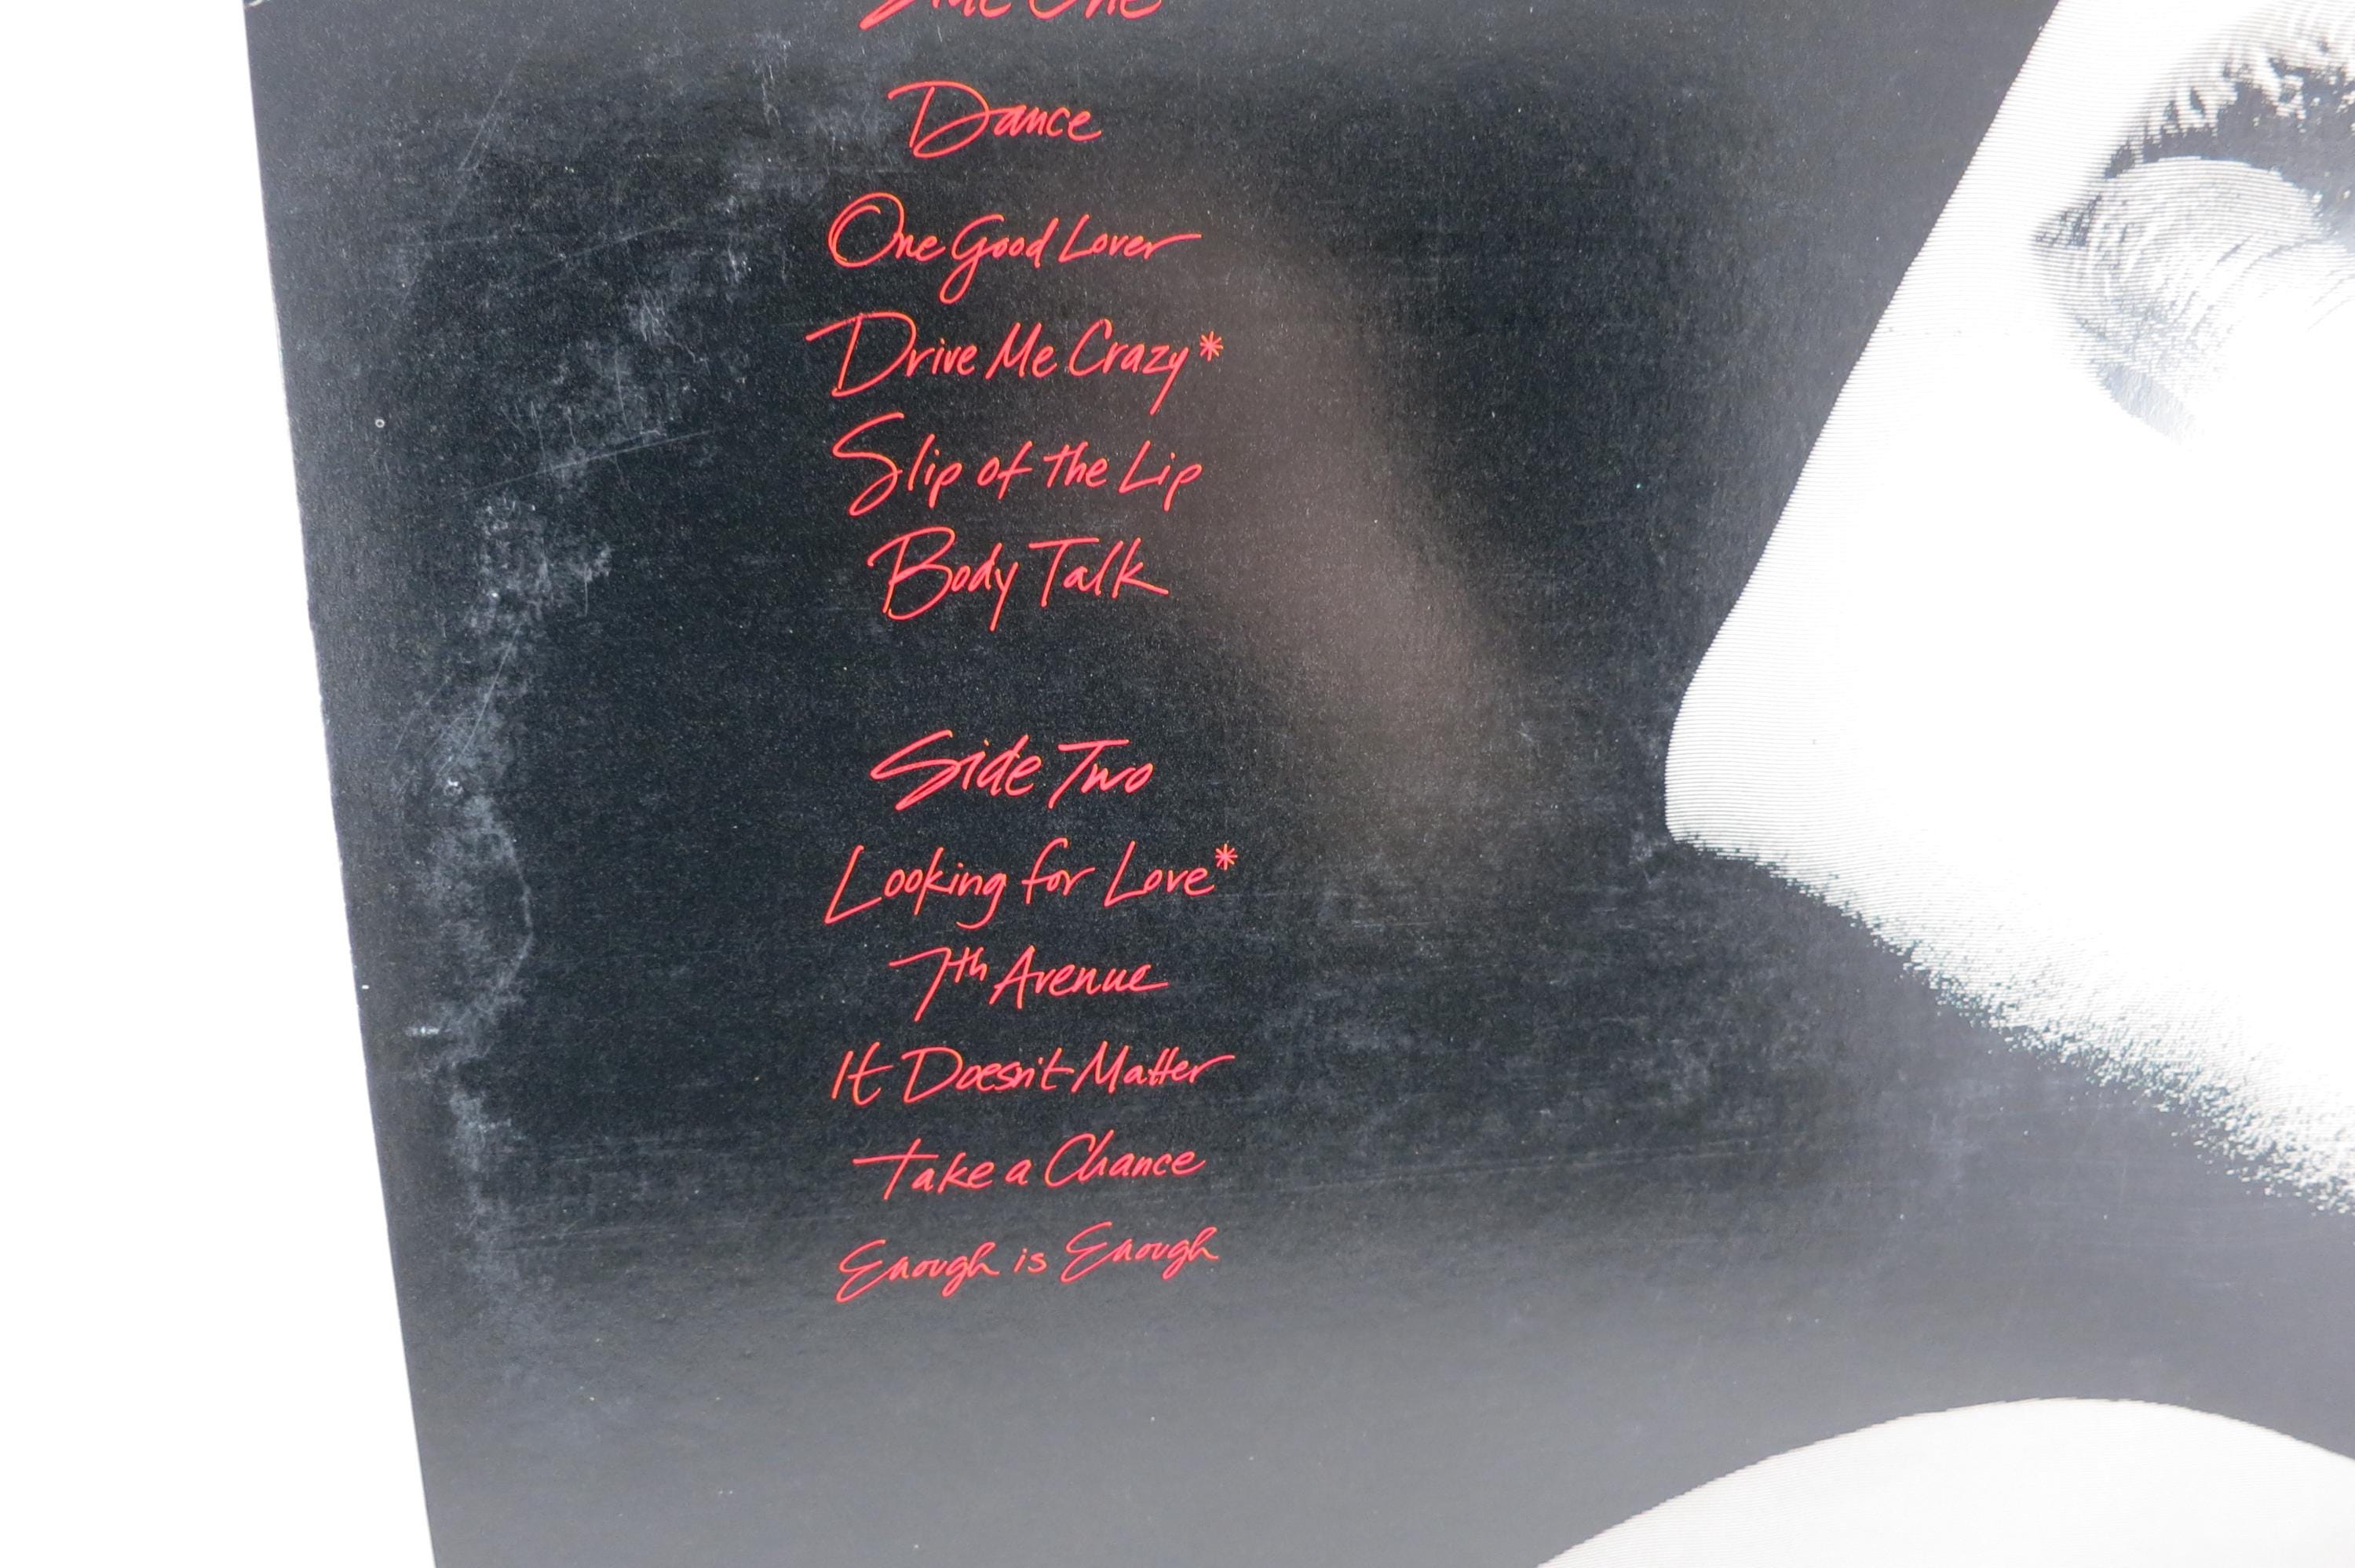 Side One
Dance
One Good Lover
Drive Me Crazy*
Slip of the Lip
Body Talk
Side Two
Looking for Love*
7th Avenue
It Doesn't Matter
Take a Chance
Enough is Enough